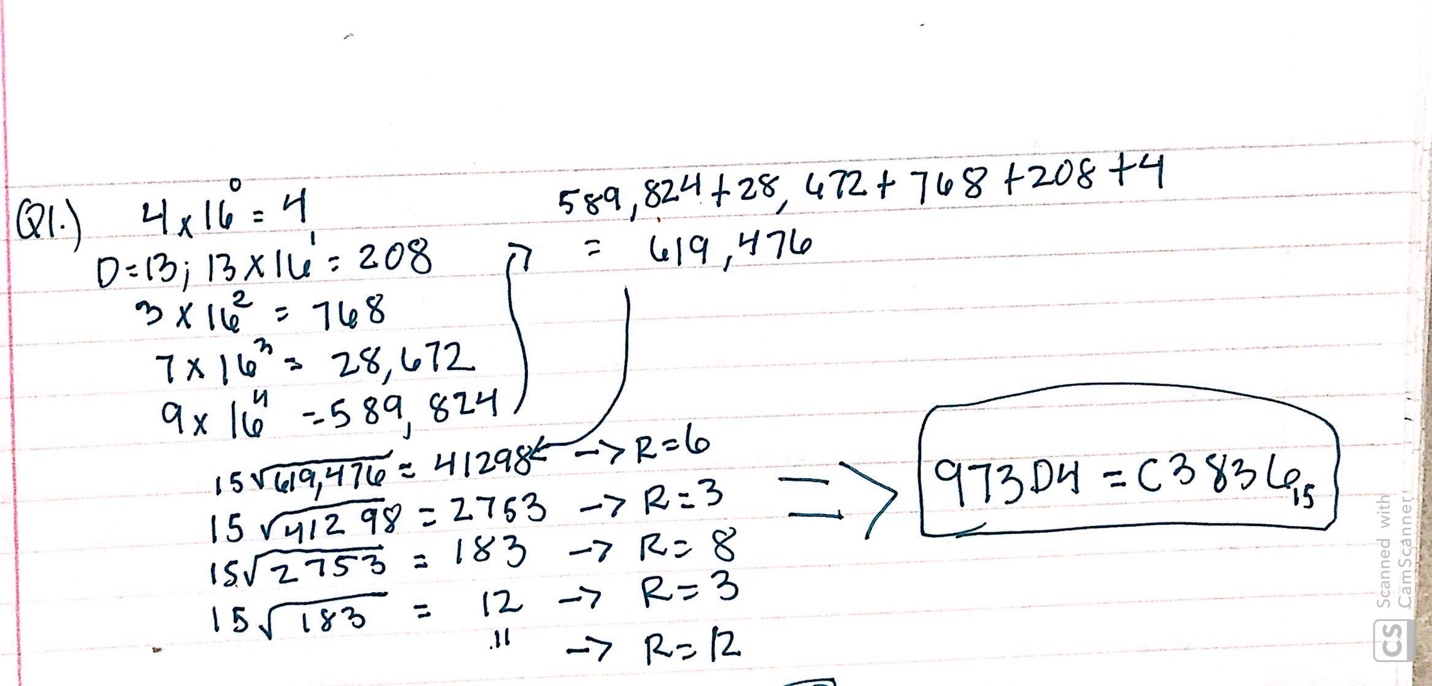 Q1.) 4 x 16⁰ = 4
D=13; 13 x 16¹ = 208
3 x 16² = 768
7 x 16³ = 28,672
9 x 16⁴ = 589,824
589,824 + 28,672 + 768 + 208 + 4
= 619,476
15√619,476 = 41298 -> R=6
15√41298 = 2753 -> R=3
15√2753 = 183 -> R=8
15√183 = 12 -> R=3
" -> R=12
=> 973D4 = C3836₁₅
Scanned with
CamScanner
CS